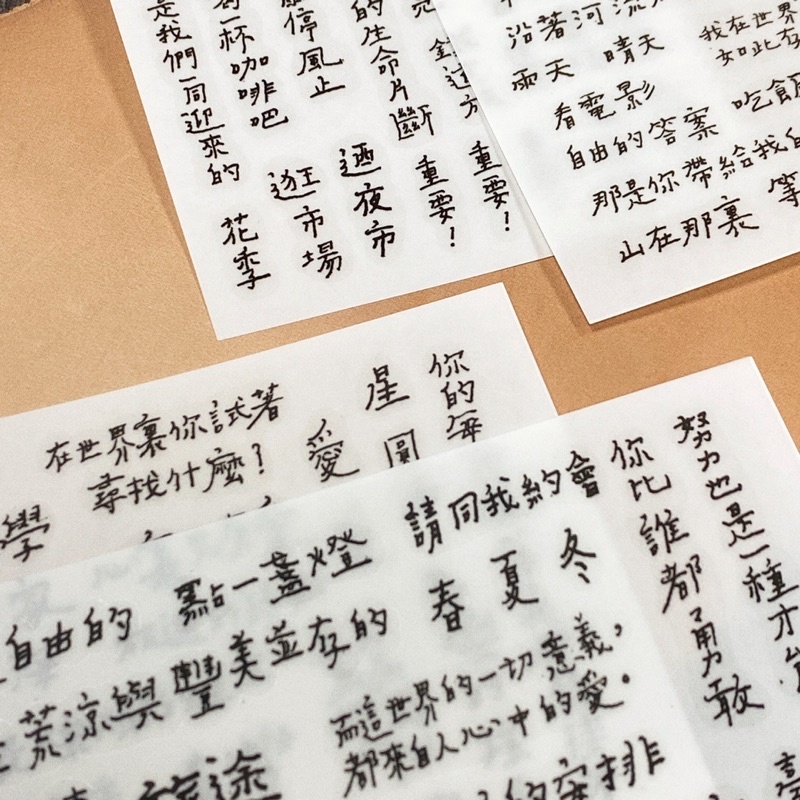 是我們一同迎來的 花季
一杯咖啡吧 逛市場
停風止 逛夜市
的生命片斷 重要！
重要！
沿著河流
雨天 晴天
我在世界
如此存
看電影
自由的答案 吃飯
那是你帶給我
山在那裏 等
在世界裏你試著
尋找什麼？
學
愛
星
圓
你的每
自由的 點一盞燈 請同我約會
荒涼與豐美並存的 春 夏 冬
而這世界的一切意義，
都來自人心中的愛。
旅途
的安排
你比誰都勇敢
努力也是一種才